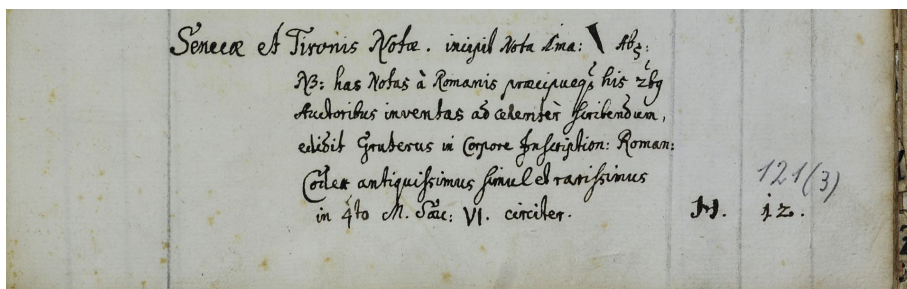 Senecæ et Tironis Notæ. incipit Nota 1ma: \ Ab;
NB: has Notas à Romanis præcipueq̃ his 2bq
Auctoribus inventas ad celeritèr scribendum,
edidit Gruterus in Corpore Inscription: Roman:
Codex antiquissimus simul et rarissimus
121(3)
in 4to M. Sæc: VI. circiter. H. 12.